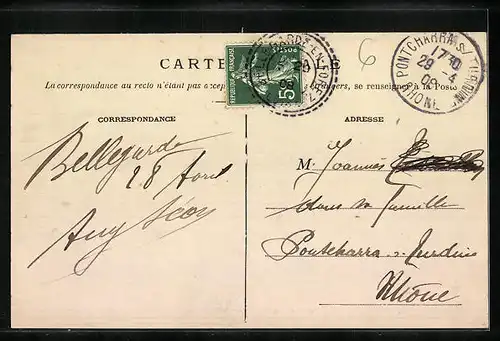 CARTE
La correspondance au recto n'étant pas
se renseigner à la Poste
REPUBLIQUE FRANÇAISE
POSTES
5
BELLEGARDE-EN-FOREZ
08
PONTCHARRA S/ TURDINE
17 10
29 -4
08
RHONE
6
CORRESPONDANCE
Bellegarde
28 Avril
ADRESSE
M. Joannès
dans sa famille
Pontcharra s. Turdine
Rhône